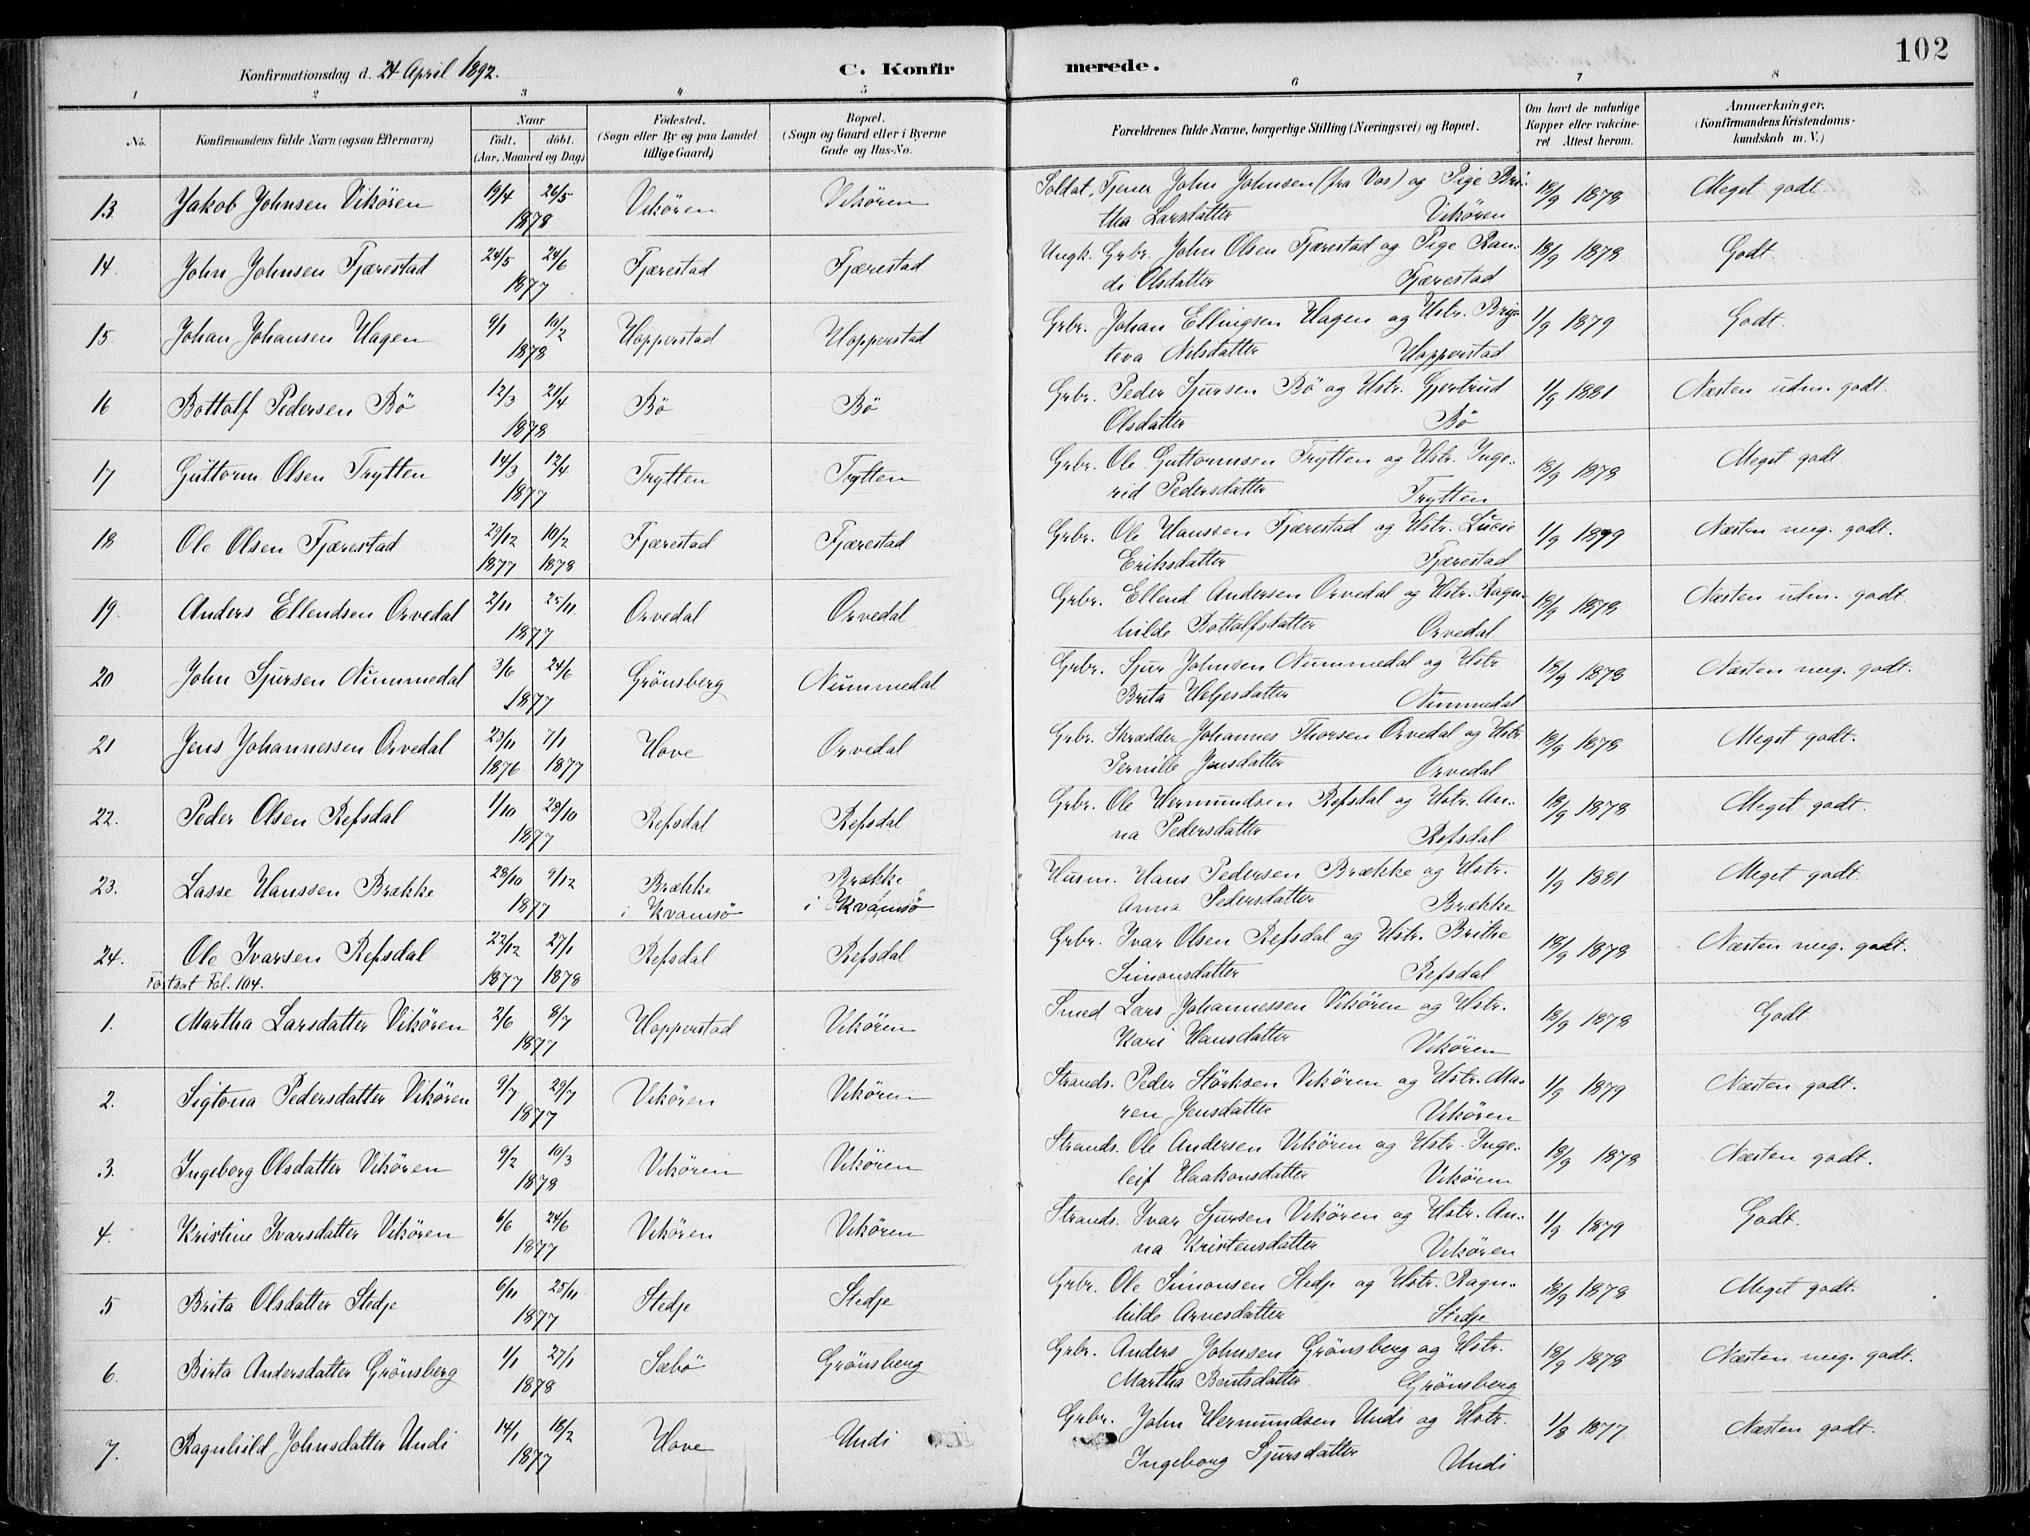 102
Konfirmationsdag d. 24 April 1892.
C. Konfirmerede.
1 2 3 4 5 6 7 8
No.
Konfirmandens fulde Navn (ogsaa Efternavn)
Naar
födt. döbt.
(Aar, Maaned og Dag)
Födested.
(Sogn eller By og paa Landet
tillige Gaard)
Bopæl.
(Sogn og Gaard eller i Byerne
Gade og Hus-No.
Forældrenes fulde Navne, borgerlige Stilling (Næringsvei) og Bopæl.
Om havt de naturlige
Kopper eller vakcine-
ret. Attest herom.
Anmærkninger,
(Konfirmandens Kristendoms-
kundskab m. V.)
13 Jakob Johnsen Vikören 19/4 26/5 1878 Vikören Vikören Soldat, Tjener John Johnsen (fra Vos) og Pige Bri-
tha Larsdatter Vikören 18/9 1878 Meget godt.
14. John Johnsen Fjærestad 24/5 24/6 1877 Fjærestad Fjærestad Ungk. Grbr. John Olsen Fjærestad og Pige Ran-
di Olsdatter Fjærestad 18/9 1878 Godt.
15. Johan Johansen Hagen 9/1 10/2 1878 Hopperstad Hopperstad Grbr. Johan Ellingsen Hagen og Hstr. Brig-
teva Nilsdatter Hopperstad 1/9 1879 Godt.
16 Bottolf Pedersen Bö 12/3 21/4 1878 Bö Bö Grbr. Peder Sjursen Bö og Hstr. Gjertrud
Olsdatter Bö 1/9 1881 Næsten udm. godt.
17 Guttorm Olsen Trytten 14/3 12/4 1877 Trytten Trytten Grbr. Ole Guttormsen Trytten og Hstr. Inge-
rid Pedersdatter Trytten 18/9 1878 Meget godt.
18 Ole Olsen Fjærestad 29/12 1877 10/2 1878 Fjærestad Fjærestad Grbr. Ole Hanssen Fjærestad og Hstr. Lucie
Eriksdatter Fjærestad 1/9 1879 Næsten meg. godt.
19. Anders Ellendsen Orvedal 2/11 25/11 1877 Orvedal Orvedal Grbr. Ellend Andersen Orvedal og Hstr. Ragn-
hilde Bottolfsdatter Orvedal 18/9 1878 Næsten udm. godt.
20 John Sjursen Nummedal 3/6 24/6 1877 Grönsberg Nummedal Grbr. Sjur Johnsen Nummedal og Hstr.
Brita Helgesdatter Nummedal 18/9 1878 Næsten meg. godt.
21 Jens Johannessen Orvedal 23/11 1876 7/1 1877 Hove Orvedal Grbr. Skrædder Johannes Thorsen Orvedal og Hstr
Pernille Jensdatter Orvedal 18/9 1878 Meget godt.
22. Peder Olsen Refsdal 1/10 28/10 1877 Refsdal Refsdal Grbr. Ole Hermundsen Refsdal og Hstr. An-
na Pedersdatter Refsdal 18/9 1878 Meget godt.
23. Lasse Hanssen Brække 28/10 9/12 1877 Brække i Kvamsö Brække i Kvamsö Husm. Hans Pedersen Brække og Hstr.
Anna Pedersdatter Brække 1/9 1881 Meget godt.
24. Ole Ivarsen Refsdal 22/12 1877 27/1 1878 Refsdal Refsdal Grbr. Ivar Olsen Refsdal og Hstr. Brithe
Simonsdatter Refsdal 18/9 1878 Næsten meg. godt.
Fortsat Fol. 104.
1. Martha Larsdatter Vikören 2/6 8/7 1877 Hopperstad Vikören Smed Lars Johannessen Vikören og Hstr.
Kari Hansdatter Vikören 18/9 1878 Godt
2. Sigtona Pedersdatter Vikören 9/7 29/7 1877 Vikören Vikören Strands. Peder Störksen Vikören og Hstr. Ma-
ren Jensdatter Vikören 1/9 1879 Næsten godt.
3. Ingeborg Olsdatter Vikören 9/2 10/3 1878 Vikören Vikören Strands. Ole Andersen Vikören og Hstr. Inge-
leif Haakonsdatter Vikören 18/9 1878 Næsten godt.
4. Kristine Ivarsdatter Vikören 6/6 24/6 1877 Vikören Vikören Strands. Ivar Sjursen Vikören og Hstr. An-
na Kristensdatter Vikören 1/9 1879 Godt.
5 Brita Olsdatter Stedje 6/11 25/11 1877 Stedje Stedje Grbr. Ole Simonsen Stedje og Hstr. Ragn-
hilde Arnesdatter Stedje 18/9 1878 Meget godt.
6. Birta Andersdatter Grönsberg 1/1 27/1 1878 Sæbö Grönsberg Grbr. Anders Johnsen Grönsberg og Hstr.
Martha Bentsdatter Grönsberg 18/9 1878 Næsten meg. godt.
7. Ragnhild Johnsdatter Undi 14/1 18/2 1877 Hove Undi Grbr. John Hermundsen Undi og Hstr.
Ingeborg Sjursdatter Undi 1/8 1877 Næsten godt.